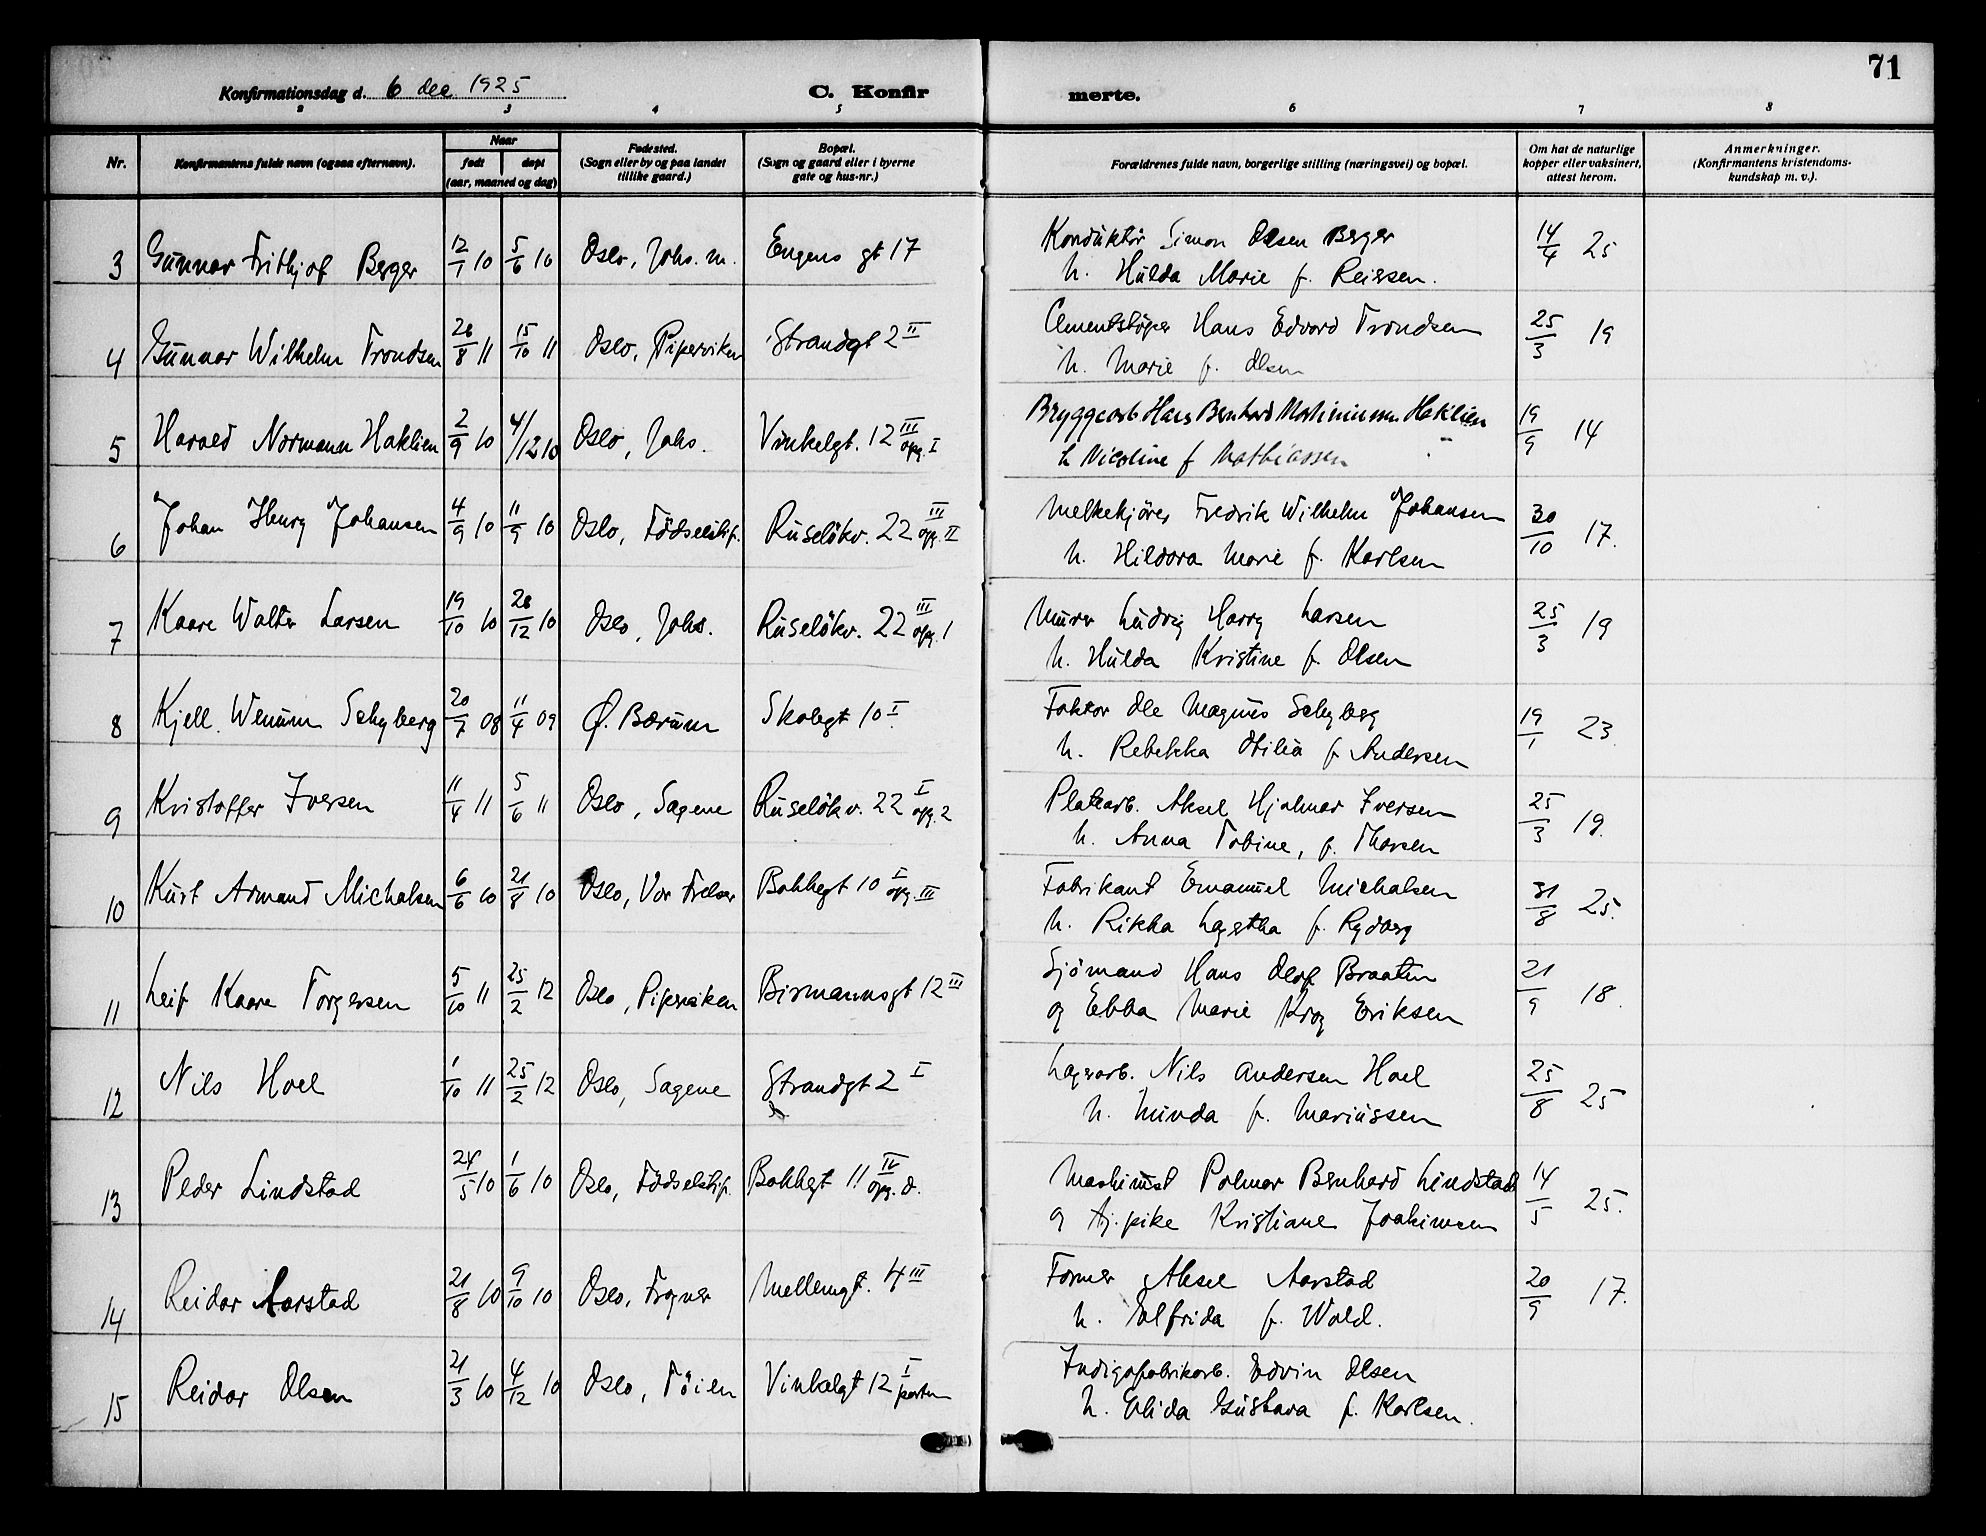 71
Konfirmationsdag d. 6 dec 1925
C. Konfirmerte.
2 3 4 5 6 7 8
Nr.
Konfirmantens fulde navn (ogsaa efternavn).
Naar
født
døpt
(aar, maaned og dag)
Fødested.
(Sogn eller by og paa landet
tillike gaard.)
Bopæl.
(Sogn og gaard eller i byerne
gate og hus-nr.)
Forældrenes fulde navn, borgerlige stilling (næringsvei) og bopæl.
Om hat de naturlige
kopper eller vaksinert,
attest herom.
Anmerkninger.
(Konfirmantens kristendoms-
kundskap m. v.).
3 Gunnar Frithjof Berger 12/1 10 5/6 10 Oslo, Johs. m. Engens gt 17 Konduktør Simon Olsen Berger 14/4 25
h. Hulda Marie f. Reiersen.
4 Gunnar Wilhelm Trondsen 28/8 11 15/10 11 Oslo, Piperviken Strandgt 2 II Cementstøper Hans Edvard Trondsen 25/3 19
h. Marie f. Olsen
5 Harald Normann Haklien 2/9 10 4/12 10 Oslo, Johs. Vinkelgt. 12 III opg. I Bryggearb. Hans Bernhard Martiniussen Haklien 19/9 14
h Nicoline f Mathiassen
6 Johan Henry Johansen 4/9 10 11/9 10 Oslo, Födselstif. Ruselökv. 22 III opg. II Melkekjører Fredrik Wilhelm Johansen 30/10 17.
h. Hildora Marie f. Karlsen
7 Kaare Walter Larsen 19/10 10 28/12 10 Oslo, Johs. Ruselökv. 22 III opg. 1 Murer Ludvig Harry Larsen 25/3 19
h. Hulda Kristine f. Olsen
8 Kjell Wenum Schyberg 20/7 08 11/4 09 Ø. Bærum Skolegt 10 I Faktor Ole Magnus Schyberg 19/1 23
h. Rebekka Otilia f Andersen
9 Kristoffer Iversen 11/4 11 5/6 11 Oslo, Sagene Ruselökv. 22 I opg. 2 Platearb. Aksel Hjalmar Iversen 25/3 19.
h. Anna Tobine, f. Thorsen
10 Kurt Armand Michalsen 6/6 10 21/8 10 Oslo, Vor Frelser Bakkegt 10 I opg. III Fabrikant Emanuel Michalsen 31/8 25.
h. Rikka Lagertha f. Rydberg
11 Leif Kaare Torgersen 5/10 11 25/2 12 Oslo, Piperviken Birmannsgt 12 III Sjömand Hans Olaf Braaten 21/9 18.
og Ebba Marie Krog Eriksen
12 Nils Hoel 1/10 11 25/2 12 Oslo, Sagene Strandgt 2 I Lagerarb. Nils Andersen Hoel 25/8 25
h. Minda f. Mariussen
13 Peder Lindstad 24/5 10 1/6 10 Oslo, Födselstif. Bakkegt 11 IV opg. Maskinist Palmar Bernhard Lindstad 14/5 25.
og tj.pike Kristiane Joakimsen
14 Reidar Aarstad 21/8 10 9/10 10 Oslo, Frogner Mellemgt. 4 III Former Aksel Aarstad 20/9 17.
h. Elfrida f. Wold.
15 Reidar Olsen 21/3 10 4/12 10 Oslo, Töien Vinkelgt 12 I Indigofabrikarb. Edvin Olsen
h. Elida Gustava f. Karlsen.